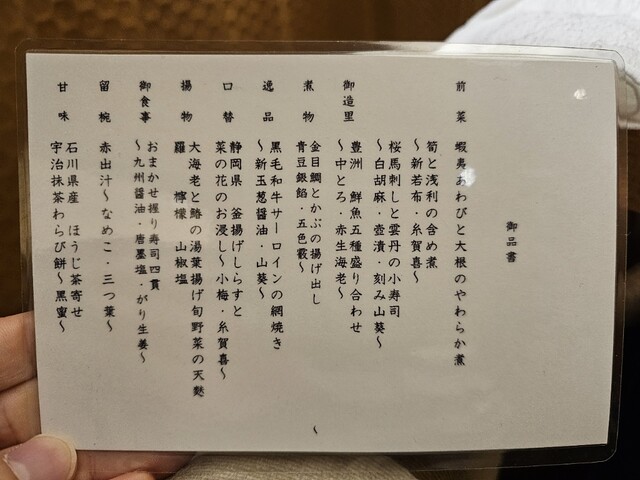 御品書
前菜 蝦夷あわびと大根のやわらか煮
筍と浅利の含め煮
〜新若布・糸賀喜〜
桜馬刺しと雲丹の小寿司
〜白胡麻・壺漬・刻み山葵〜
御造里 豊洲 鮮魚五種盛り合わせ
〜中とろ・赤生海老〜
煮物 金目鯛とかぶの揚げ出し
青豆銀餡・五色霰〜
逸品 黒毛和牛サーロインの網焼き
〜新玉葱醤油・山葵〜
口替 静岡県 釜揚げしらすと
菜の花のお浸し〜小梅・糸賀喜〜
揚物 大海老と鰆の湯葉揚げ旬野菜の天麩
羅 檸檬 山椒塩
御食事 おまかせ握り寿司四貫
〜九州醤油・唐墨塩・がり生姜〜
留椀 赤出汁〜なめこ・三つ葉〜
甘味 石川県産 ほうじ茶寄せ
宇治抹茶わらび餅〜黒蜜〜
〜